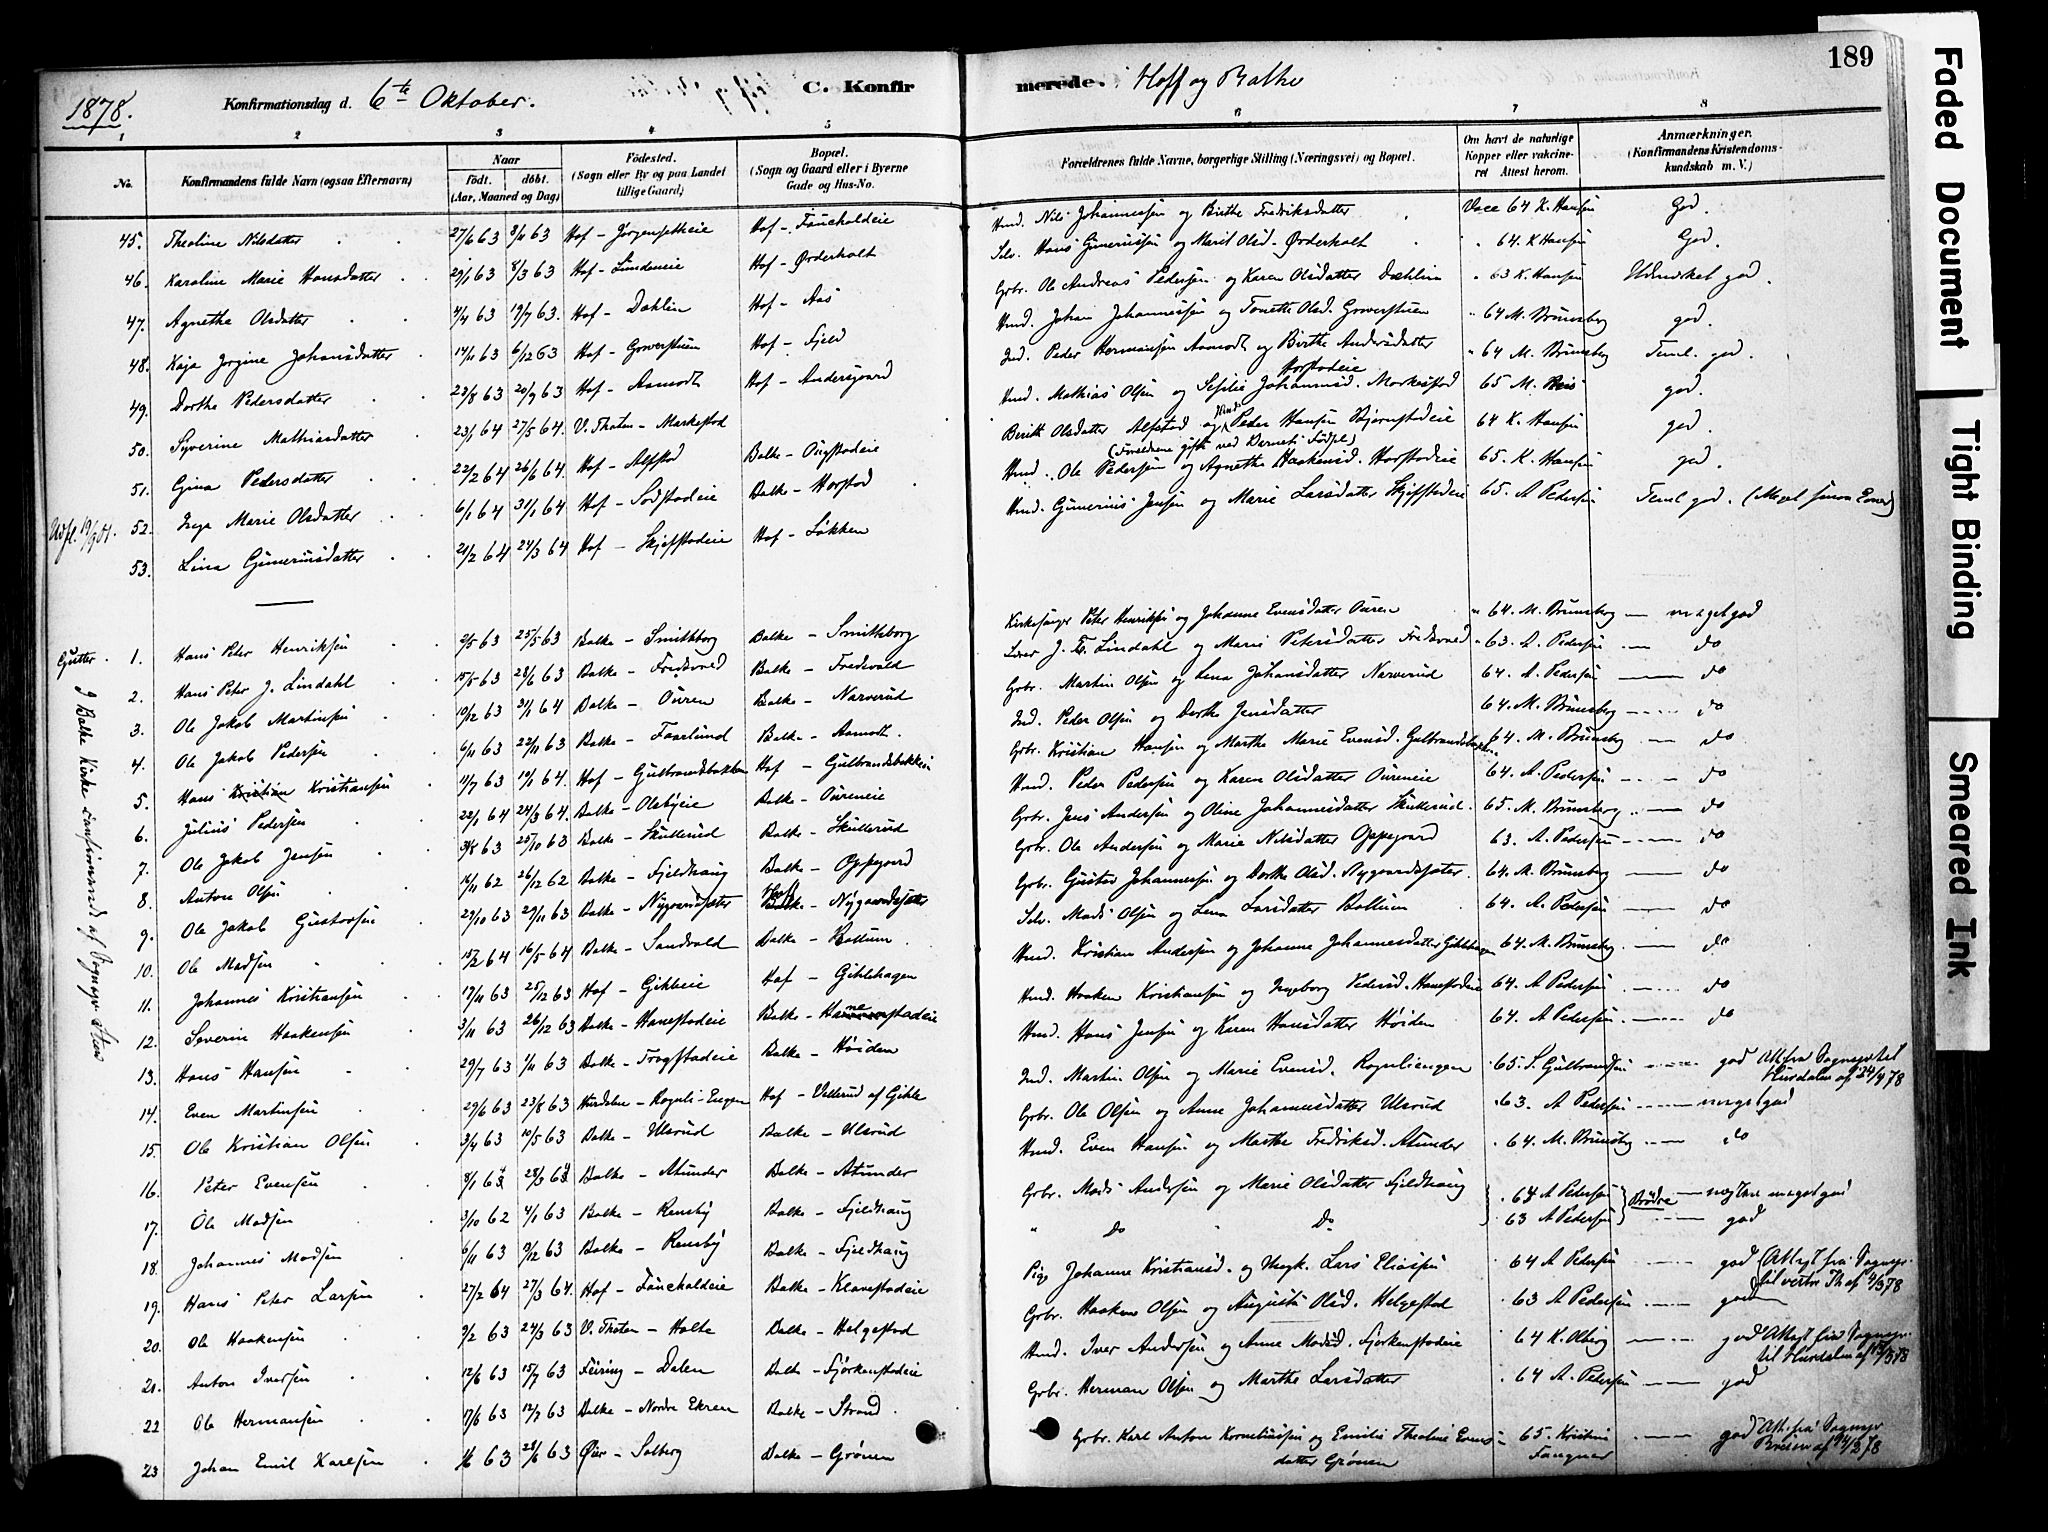 1878. Konfirmationsdag d. 6te Oktober. C. Konfirmerede. Hoff og Balke 189
1 2 3 4 5 6 7 8
No. Konfirmandens fulde Navn (ogsaa Efternavn) Naar født. døbt. (Aar, Maaned og Dag) Fødested. (Sogn eller By og paa Landet tillige Gaard) Bopæl. (Sogn og Gaard eller i Byerne Gade og Hus-No. Forældrenes fulde Navne, borgerlige Stilling (Næringsvei) og Bopæl. Om havt de naturlige Kopper eller vakcineret Attest herom. Anmærkninger. (Konfirmandens Kristendomskundskab m. V.)
45. Theoline Nilsdatter 27/6 63 8/11 63 Hof - Jørgensetheie Hof - Faucholdeie Hmd. Nils Johannessen og Birthe Fredriksdatter Vacc 64 K. Hansen God.
46. Karoline Marie Hansdatter 29/1 63 8/3 63 Hof - Lundeneie Hof - Ørderholt Selv. Hans Gunerussen og Marit Olsd. Ørderholt " 64. K Hansen God.
47. Agnethe Olsdatter 4/4 63 19/7 63. Hof - Dæhlin Hof - Aas Grbr. Ole Andreas Pedersen og Karen Olsdatter Dæhlin " 63 K. Hansen Udmærket god.
48. Kaja Jorgine Johansdatter 14/11 63 6/12 63 Hof - Goverstuen Hof - Fjeld Hmd. Johan Johannessen og Tonette Olsd. Goverstuen " 64 M. Brunsberg god.
49. Dorthe Pedersdatter 23/8 63 20/9 63 Hof - Aamodt Hof - Andersgaard Ind. Peder Hermansen Aamodt og Birthe Andersdatter " 64 M. Brunsberg Teml. god.
50. Syverine Mathiasdatter 23/1 64 27/5 64. V. Thoten - Markestad Horstadeie Hmd. Mathias Olsen og Sefilie Johannesd. Markestad 65 M. god.
51. Gina Pedersdatter 22/2 64 26/6 64. Hof - Alfstad Balke - Ougstadeie Beritt Olsdatter Alfstad og Hmd. Peder Hansen Bjørnstadeie (Forældrene gifte ved Barnets Fødsel) 64 K. Hansen god.
Udfl. 19/9 01. 52. Inga Marie Olsdatter 6/1 64 31/1 64 Hof - Sodstadeie Balke - Horstad Hmd. Ole Pedersen og Agnethe Haakensd. Horstadeie 65. K. Hansen god.
53. Lina Gunerusdatter 21/2 64 24/3 64 Hof - Skjefstadeie Hof - Løkken Hmd. Gunerius Jensen og Marie Larsdatter Skjefstadeie 65. A Pedersen Teml god.
Gutter. I Balke Kirke confirmerede af Sognepr.
1. Hans Peter Henriksen 2/5 63 25/5 63 Balke - Smithborg Balke - Smitheborg Kirkesanger Peter Henriksen og Johanne Evensdatter Ouren " 64. M. Brunsberg — meget god
2. Hans Peter J. Lindahl 15/5 63 28/6 63 Balke - Fredsvad Balke - Fredsvold Lærer J. F. Lindahl og Marie Petersdatter Fredsvad " 63. A. Pedersen — do
3. Ole Jakob Martinsen 19/12 63 31/1 64 Balke - Ouren Balke - Narverud Grbr. Martin Olsen og Lena Johansdatter Narverud 64. A. Pedersen — do
4. Ole Jakob Pedersen 6/11 63 22/11 63 Balke - Faarlund Balke - Aamodt. Ind. Peder Olsen og Dorthe Jensdatter 64. M. Brunsberg — do
5. Hans Kristian Kristiansen 11/7 63 19/1 64. Hof - Gulbrandsbakken Hof - Gulbrandsbakken Grbr. Kristian Hansen og Marthe Marie Evensd. Gulbrandsbakken 64. M. Brunsberg — do
6. Julius Pedersen 22/1 64 24/3 64. Balke - Olsbyeie Balke - Oureneie Hmd. Peder Pedersen og Karen Olsdatter Oureneie 64. A. Pedersen — do
7. Ole Jakob Jensen 31/8 63 25/10 63 Balke - Skullerud Balke - Skullerud Grbr. Jens Andersen og Oline Johannesdatter Skullerud. 65. M. Brunsberg. — do
8. Anton Olsen 16/11 62 26/12 62 Balke - Fjeldhaug Balke - Oppegaard Grbr. Ole Andersen og Marie Nilsdatter Oppegaard 63. A. Pedersen — do
9. Ole Jakob Gustavsen 29/10 63 29/11 63 Balke - Nygaardsæter Hof - Nygaardsæter Grbr. Gustav Johannessen og Dorthe Olsd. Nygaardsæter 64. M. Brunsberg — do
10. Ole Madsen 15/2 64 16/5 64 Balke - Sandvold Balke - Bollum. Selv. Mads Olsen og Lena Larsdatter Bollum 64. A. Pedersen — do
11. Johannes Kristiansen 17/11 63 25/12 63 Hof - Gihleeie Hof - Gihlehagen Hmd. Kristian Andersen og Johanne Johannesdatter Gihlehagen 64. M. Brunsberg. — do
12. Severin Haakensen 3/11 63 26/12 63 Balke - Hanestadeie Balke - Hanestadeie Hmd. Haaken Kristiansen og Ingeborg Pedersd. Hanestadeie 64. A Pedersen — do
13. Hans Hansen 29/7 63 1/11 63 Balke - Trogstadeie Balke - Høiden Hmd. Hans Jensen og Karen Hansdatter Høiden 64. A Pedersen — do
14. Even Martinsen 29/6 63 23/8 63 Hurdalen - Rognli-Engen Hof - Vellerud af Gihle Ind. Martin Olsen og Marie Evensd. Rognliengen 65. S. Gulbrandsen — god Att. fra Sognepr til Hurdalen af 24/4 78
15. Ole Kristian Olsen 3/4 63 10/5 63 Balke - Ulsrud Balke - Ulsrud Grbr. Ole Olsen og Anne Johannesdatter Ulsrud 63. A Pedersen — meget god
16. Peter Evensen 8/1 64 28/3 64 Balke - Alunder Balke - Alunder Hmd. Even Hansen og Marthe Fredriksd. Alunder 64. M. Brunsberg — do
17. Ole Madsen 3/10 62 4/1 63 Balke - Rensby Balke - Fjeldhaug Grbr. Mads Andersen og Marie Olsdatter Fjeldhaug 64 A Pedersen Brødre — meget god
18. Johannes Madsen 6/11 63 9/12 63 Balke - Rensby Balke - Fjeldhaug " do do 63 A Pedersen — god
19. Hans Peter Larsen 27/2 64 27/3 64. Hof - Faucholdeie Balke - Klavestadeie Pige Johanne Kristiansd. og Ungk. Lars Eliassen 64 A Pedersen — god (Attest fra Sognepr. til vestre Th af 4/3 78
20. Ole Haakensen 9/2 63 24/3 63 V. Thoten - Holte Balke - Helgestad Grbr. Haaken Olsen og Augusta Olsd. Helgestad 63 A Pedersen — god
21. Anton Iversen 12/6 63 15/7 63 Feiring - Dalen Balke - Fjørkenstadeie Hmd. Iver Andersen og Anne Madsd. Fjørkenstadeie 64 K. Olberg — god Attest fra Sognepr. til Hurdalen af 13/3 78
22 Ole Hermansen 17/6 63 12/7 63 Balke - Nordre Ekren Balke - Strand. Grbr. Herman Olsen og Marthe Larsdatter 64 A. Pedersen — god
23 Johan Emil Karlsen 1/6 63 28/6 63 Øier - Solberg Balke - Grønen Grbr. Karl Anton Korneliussen og Emilie Theoline Evensdatter Grønen 65. Kristine Fangner — god Att. fra Sognepr af 14/3 78
Faded Document
Tight Binding
Smeared Ink